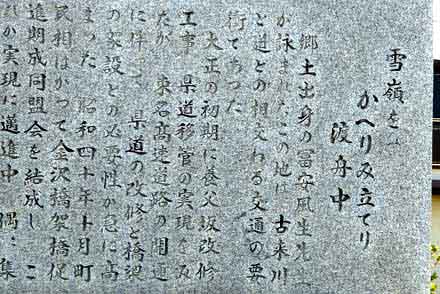 雪嶺を
かへりみ立てり
渡舟中
郷土出身の富安風生先
が詠まれたこの地は 古来川
と道との相交わる交通の要
行であつた
大正の初期に養父坂改修
工事 県道移管の実現を
たが 東名高速道路の開通
に伴 県道の改修と橋梁
の架設との必要性が急に高
まつた 昭和四十年十月町
民相はかつて金沢橋架橋促
進期成同盟会を結成し こ
が実現に邁進中 偶 集